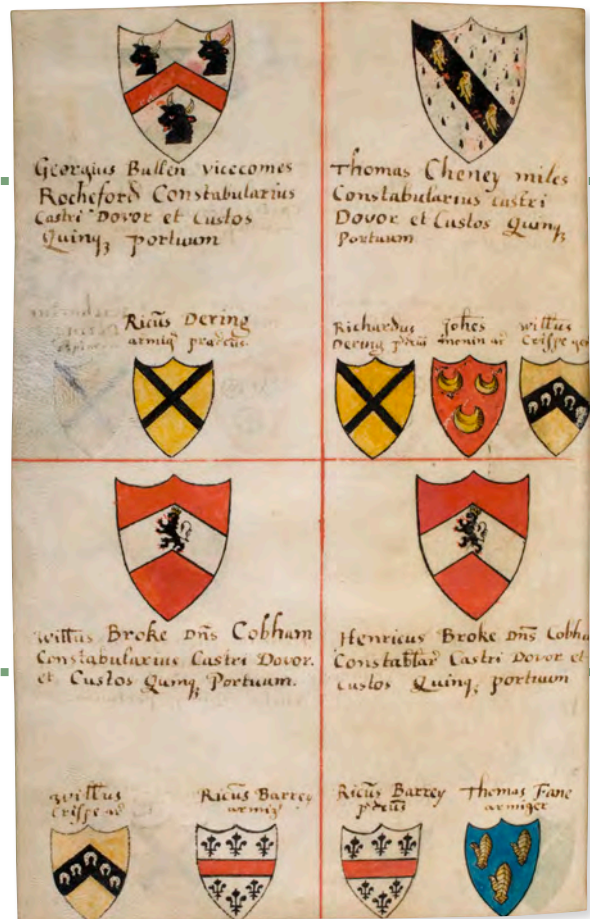 Georgius Bullen vicecomes
Rocheford Constabularius
Castri Dovor et Custos
Quinqꝫ portuum
Ricūs Dering
armigʳ
Thomas Cheney miles
Constabularius castri
Dovor et Custos Quinqꝫ
Portuum
Richardus
Dering
Johēs
monin ar
willūs
Crispe
willūs Broke Dn̄s Cobham
Constabularius Castri Dovor.
et Custos Quinqꝫ Portuum.
willūs
Crispe
Ricūs Barrey
armigʳ
Henricus Broke Dn̄s
Castri Dovor et
Custos Quinqꝫ portuum
Ricūs Barrey
Thomas Fane
armiger